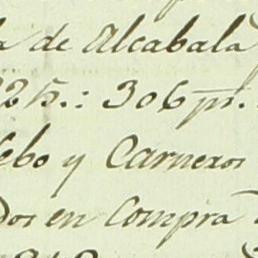 de Alcabala
306 ps.
ebo y Carneros
dos en Compra